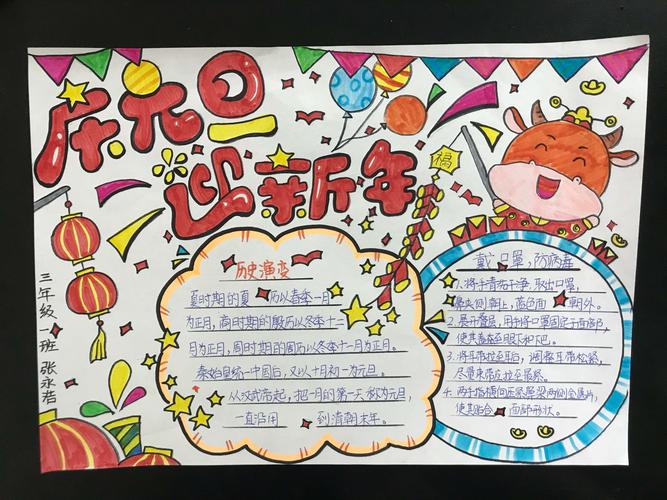 庆元旦
迎新年
福
三年级一班 张永浩
历史演变
夏时期的夏 历以春本一月
为正月,商时期的殷历以冬本十二
月为正月,周时期的周历以冬本十一月为正月。
秦始皇统一中国后,又以十月初一为元旦。
从汉武帝起,把一月的第一天称为元旦,
一直沿用 到清朝末年。
戴口罩,防病毒
1.将手清洁干净,取出口罩,
鼻夹侧朝上,蓝色面 朝外。
2.展开叠层,用手将口罩固定于面部,
使其覆盖至眼下和下巴。
3.将耳带拉至耳后,调整耳带松紧,
尽量束带应拉至最紧。
4.两手指横向压紧鼻梁两侧金属片,
使其贴合 面部形状。